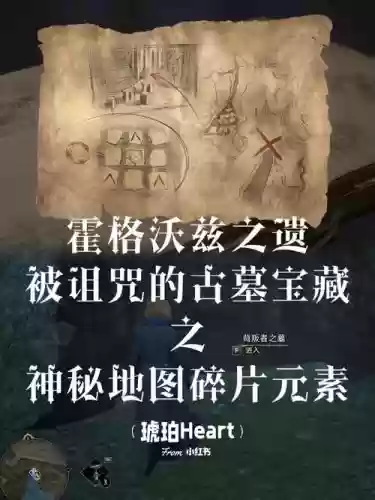 霍格沃兹之遗
被诅咒的古墓宝藏
之
苟叛者之墓
F 进入
神秘地图碎片元素
（琥珀Heart）
From 小红书